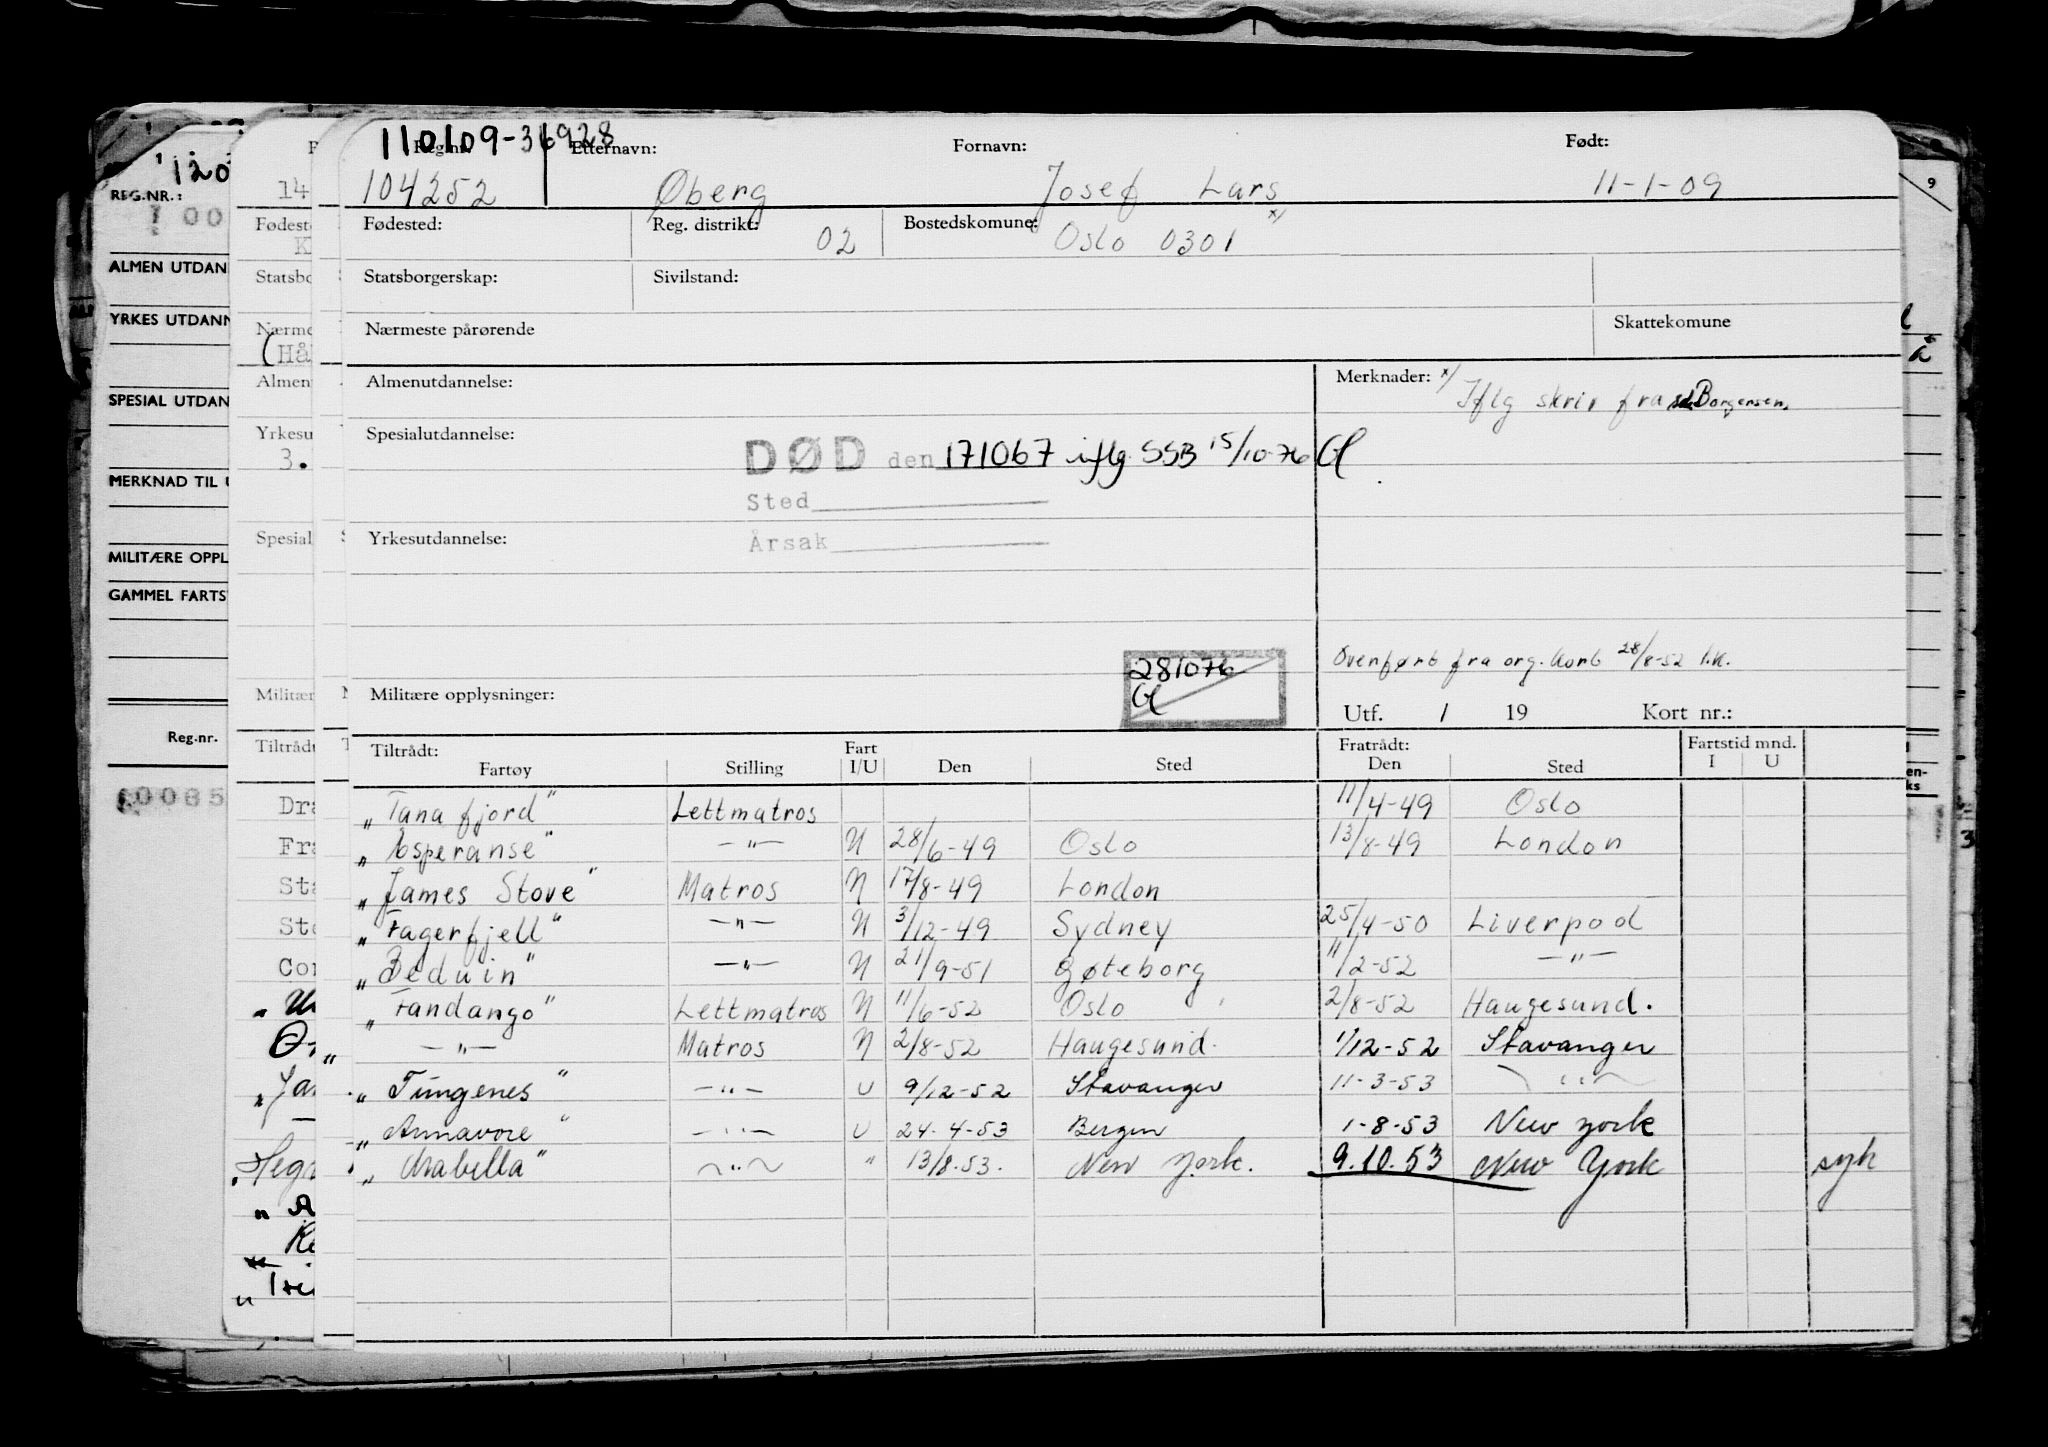 110109-36928
Reg.nr. Etternavn: Fornavn: Født:
104252 Øberg Josef Lars 11-1-09
Fødested: Reg. distrikt: 02 Bostedskomune: Oslo 0301 x/
Statsborgerskap: Sivilstand:
Nærmeste pårørende Skattekomune
Almenutdannelse: Merknader: x/ Iflg skriv fra Borgersen.
Spesialutdannelse:
DØD den 171067 iflg. SSB 15/10-76
Sted
Yrkesutdannelse: Årsak
Overført fra org. kort 28/8-52 l.k.
281076
Militære opplysninger: Utf. / 19 Kort nr.:
Tiltrådt: Fart Fratrådt: Fartstid mnd.
Fartøy Stilling I/U Den Sted Den Sted I U
„Tana fjord" Lettmatros 11/4-49 Oslo
„Esperanse" —"— U 28/6-49 Oslo 13/8-49 London
„James Stove" Matros U 17/8-49 London
„Fagerfjell" —"— U 3/12-49 Sydney 25/4-50 Liverpool
„Beduin" —"— U 21/9-51 Gøteborg 11/2-52 —"—
„Fandango" Lettmatros U 11/6-52 Oslo 2/8-52 Haugesund.
„ —"— Matros U 2/8-52 Haugesund. 1/12-52 Stavanger
„Tungenes" —"— U 9/12-52 Stavanger 11-3-53 —"—
„Annavore" —"— U 24-4-53 Bergen 1-8-53 New York
„Arabella" —"— " 13/8.53. New York. 9.10.53 New York syk
120
REG.NR.:
ALMEN UTDAN
YRKES UTDANN
SPESIAL UTDAN
MERKNAD TIL U
MILITÆRE OPPL
GAMMEL FARTS
Reg.nr.
14
Fødest
K
Statsbo
Nærme
(Hå
Almen
Yrkesu
3.
Spesial
Militær
Tiltrådt
Dra
Fra
Sta
Ste
Con
„Jan
„Hegr
„A
9